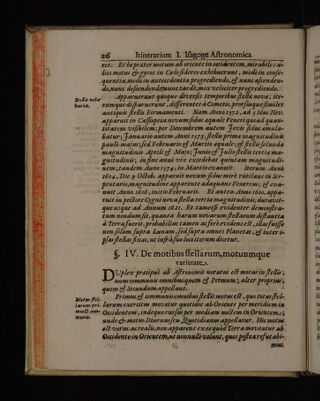 26 Itinerarium I. Isagoge Astronomica
ret. Et hi præter motum ab oriente in occidentem, mirabiles a-
lios motus & gyros in Cœlo sidereo exhibuerunt, modò in conse-
quentia, modò in antecedentia progrediendo, & nunc ascenden-
do, nunc descendendo; nunc tardè, modò velociter progrediendo.
Stella nova varia.
Apparuerunt quoque diversis temporibus stellæ novæ, ite-
rumque disparuerunt, differentes à Cometis, prorsusque similes
antiquis stellis Firmamenti. Nam Anno 1572, ad 5 Idus Nov.
apparuit in Cassiopeia novum sidus æquale Veneri quoad quan-
titatem visibilem; per Decembrem autem Jovis sidus æmula-
batur; Januario autem Anni 1573. stellis primæ magnitudinis
paulò maius; sed Februario & Martio æquale; & stellis secundæ
magnitudinis Aprili & Maio; Junio & Julio stellis tertiæ ma-
gnitudinis; in fine anni vix excedebat quintam magnitudi-
nem; tandem Anno 1574. in Martio evanuit. Iterum Anno
1604. Die 9 Octob. apparuit novum sidus mirè rutilans in Ser-
pentario, magnitudine apparente adæquans Venerem; & eva-
nuit Anno 1606. exeunte Februario. Et antea Anno 1600. appa-
ruit in pectore Cygni nova stella tertiæ magnitudinis, duravit-
que usque ad Annum 1621. Et tametsi evidenter demonstra-
tum nondum sit, quanta harum novarum stellarum distantia
à Terra fuerit, probabilius tamen ac ferè evidens est, illas fuisse
non solùm supra Lunam, sed supra omnes Planetas, & inter i-
psas stellas fixas, ut infrà suo loco iterum dicetur.
§. IV. De motibus stellarum, motuumque
varietate.
DUplex præcipuè ab Astronomis notatus est motus in stellis,
unus communis omnibus, quem & Primum; alter proprius,
quem & Secundum appellant.
Motus Stellarum primus & communis.
Primus & communis omnibus stellis motus est, quo totus stel-
larum exercitus movetur quotidie ab Oriente per meridiem in
Occidentem, indeque rursus per mediam noctem in Orientem;
unde & motus Diurnus seu Quotidianus appellatur. Hic motus
est verus ac realis, non apparens ex eo quòd Terra moveatur ab
Occidente in Orientem, ut nonnulli volunt, quos postea refutabi-
mus.